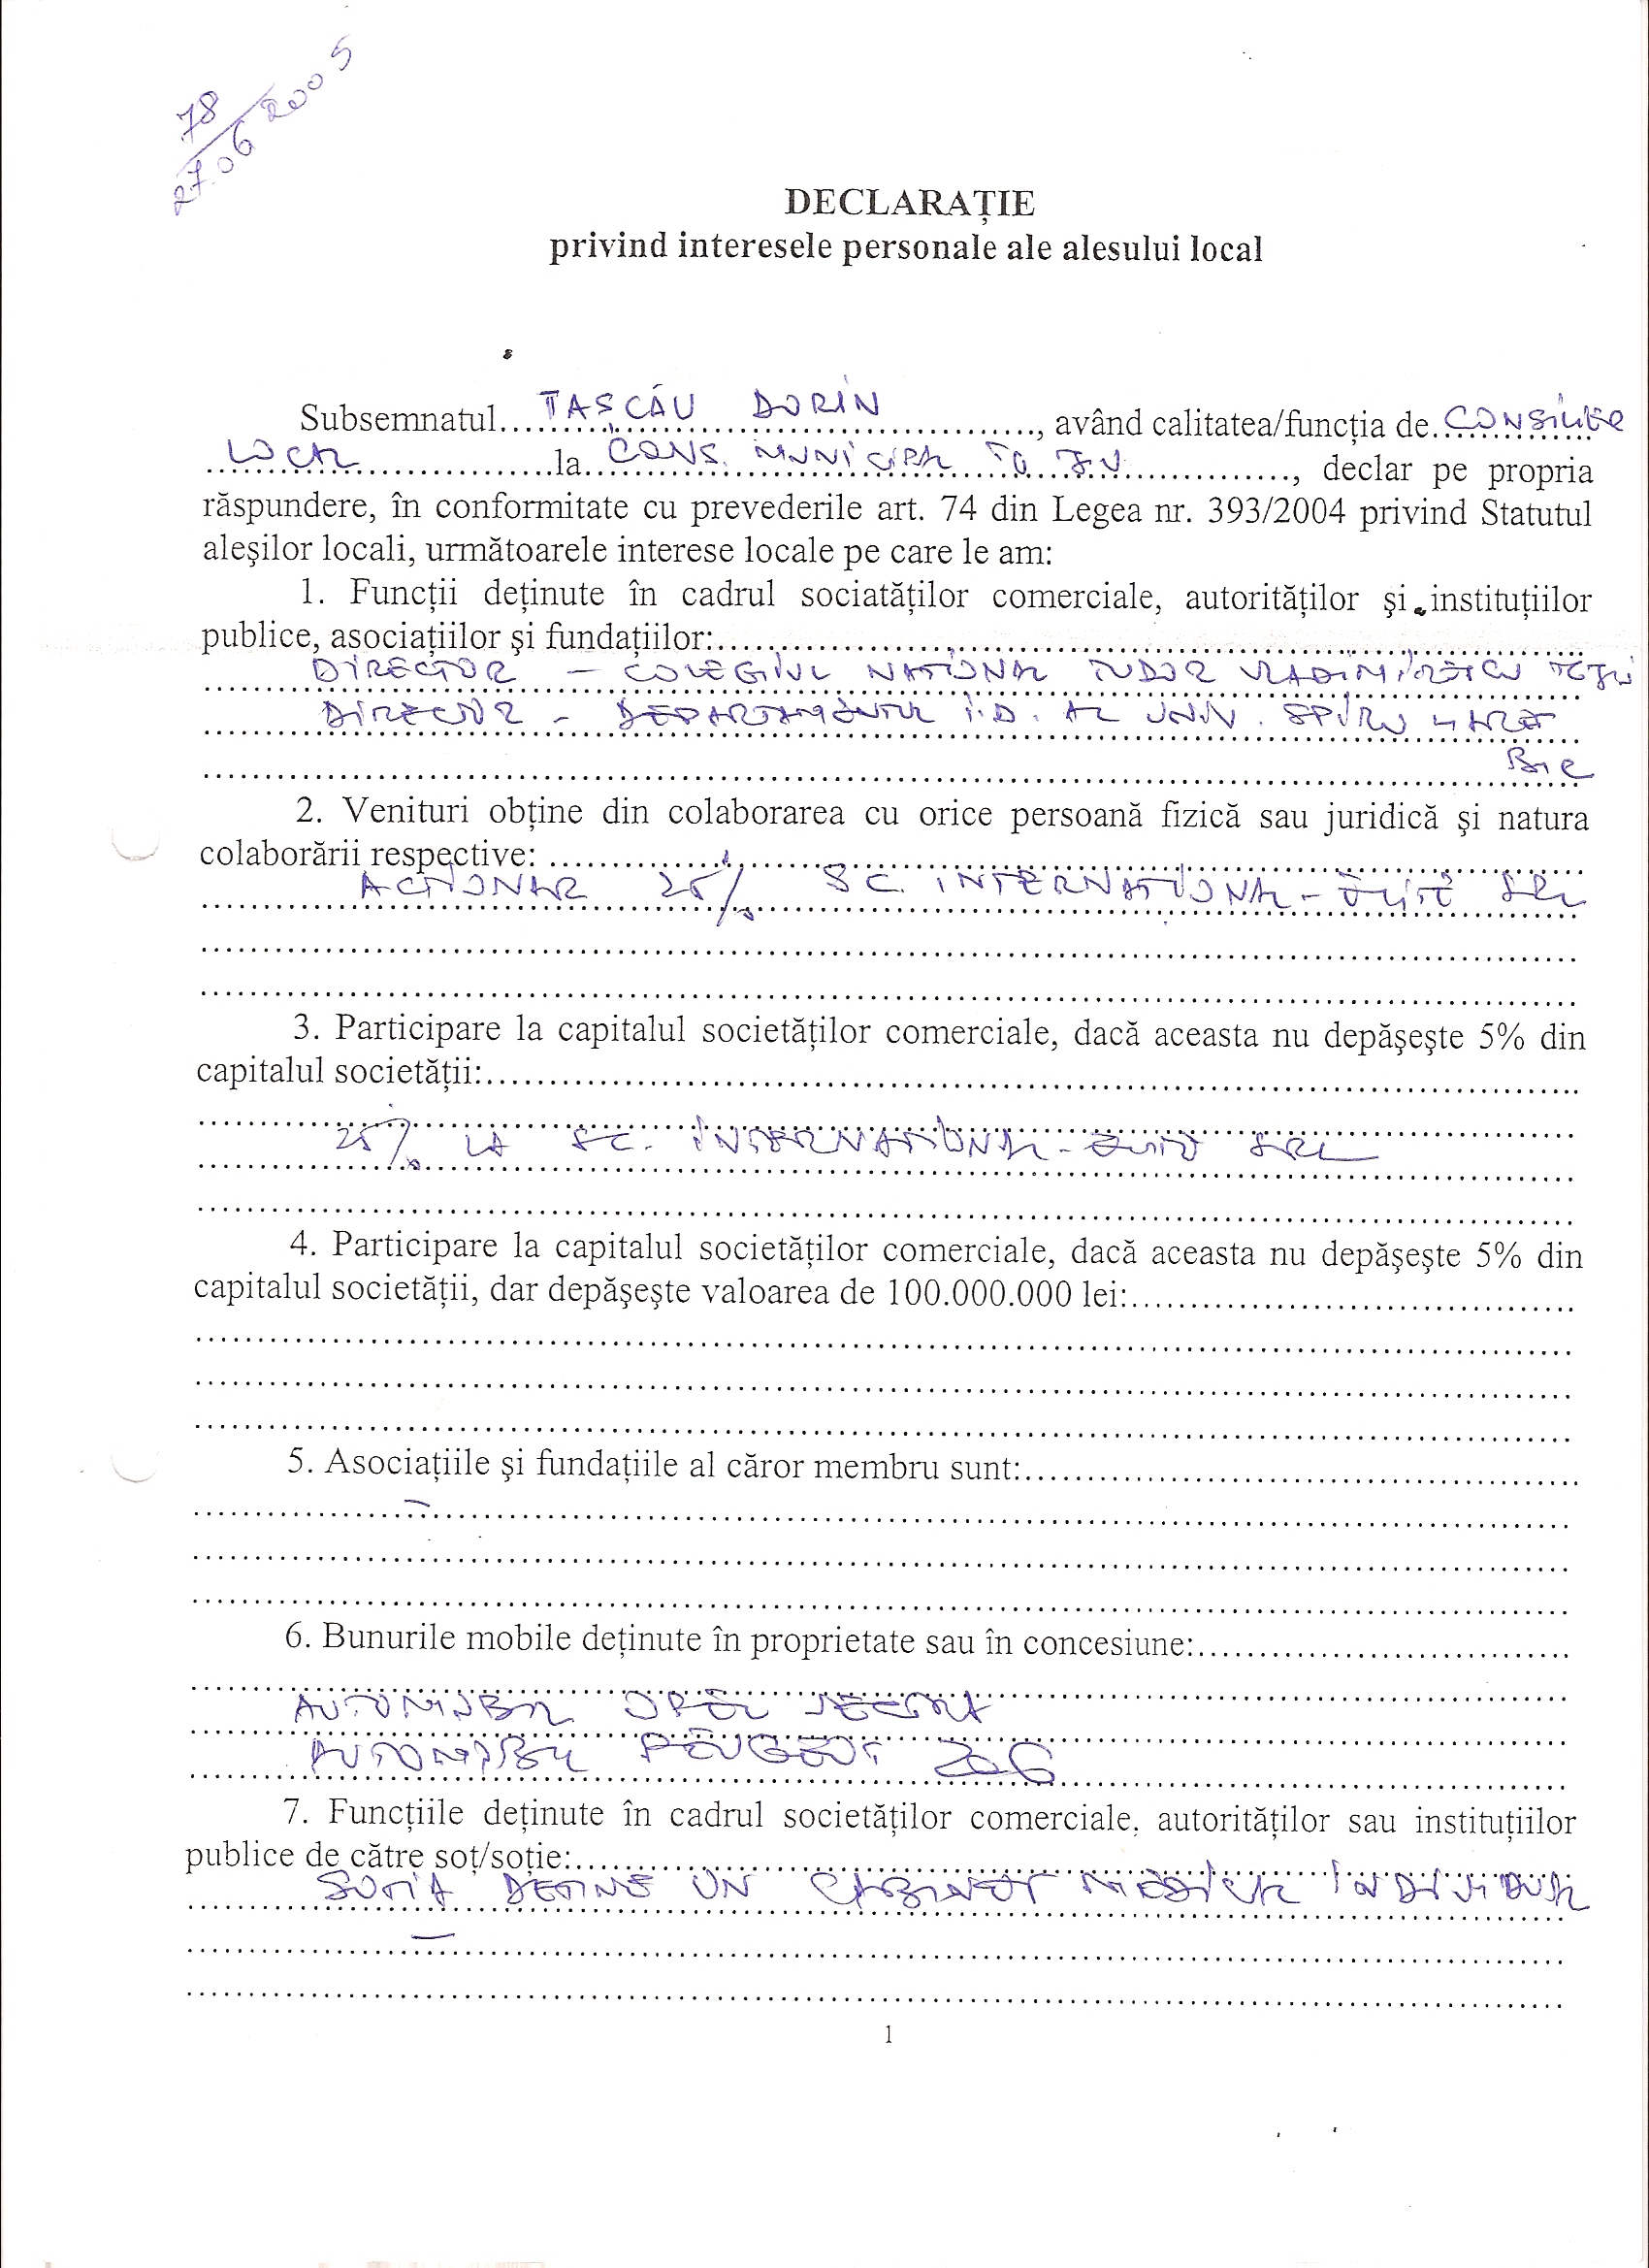 78
27.06 2005
DECLARAȚIE
privind interesele personale ale alesului local
Subsemnatul TAȘCĂU DORIN, având calitatea/funcția de CONSILIER
LOCAL la CONS. MUNICIPAL TG JIU, declar pe propria
răspundere, în conformitate cu prevederile art. 74 din Legea nr. 393/2004 privind Statutul
aleșilor locali, următoarele interese locale pe care le am:
1. Funcții deținute în cadrul sociatăților comerciale, autorităților și instituțiilor
publice, asociațiilor și fundațiilor:
DIRECTOR – COLEGIUL NATIONAL TUDOR VLADIMIRESCU TG JIU
DIRECTOR – DEPARTAMENTUL I.D. AL UNIV. SPIRU HARET
Buc
2. Venituri obține din colaborarea cu orice persoană fizică sau juridică și natura
colaborării respective:
ACȚIONAR 25% SC. INTERNATIONAL - ELITE SRL
3. Participare la capitalul societăților comerciale, dacă aceasta nu depășește 5% din
capitalul societății:
25% LA SC. INTERNATIONAL - SRL
4. Participare la capitalul societăților comerciale, dacă aceasta nu depășește 5% din
capitalul societății, dar depășește valoarea de 100.000.000 lei:
5. Asociațiile și fundațiile al căror membru sunt:
–
6. Bunurile mobile deținute în proprietate sau în concesiune:
AUTOMOBIL OPEL VECTRA
AUTOMOBIL PEUGEOT 206
7. Funcțiile deținute în cadrul societăților comerciale, autorităților sau instituțiilor
publice de către soț/soție:
SOTIA DETINE UN CABINET MEDICAL INDIVIDUAL
–
1